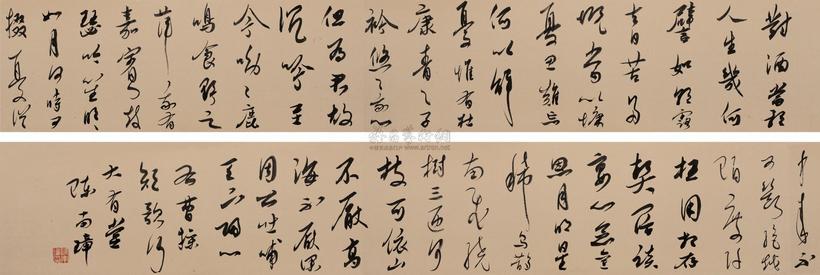 對酒當歌
人生幾何
譬如朝露
去日苦多
慨當以慷
憂思難忘
何以解
憂惟有杜
康青々子
衿悠々我心
但為君故
沉吟至
今呦々鹿
鳴食野之
苹我有
嘉賓鼓
瑟吹笙明々
如月何時可
掇憂從
中來不
可斷絕越
陌度阡
枉用相存
契闊談
宴心念舊
恩月明星
稀烏鵲
南飛繞
樹三匝何
枝可依山
不厭高
海不厭深
周公吐哺
天下歸心
右曹操
短歌行
大有堂
陳尚